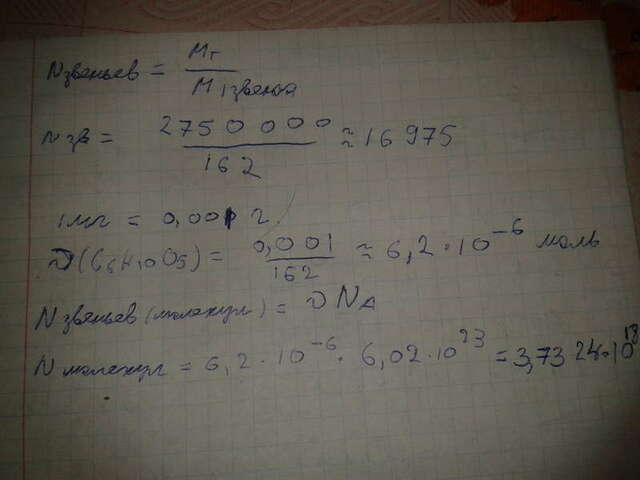 Nзвеньев = Mг / M1звена
nзв = 2750 000 / 162 ≈ 16 975
1мг = 0,001 г
ν(C6H10O5) = 0,001 / 162 ≈ 6,2 · 10⁻⁶ моль
Nзвеньев (молекул) = νNA
Nмолекул = 6,2 · 10⁻⁶ · 6,02 · 10²³ = 3,7324·10¹⁸